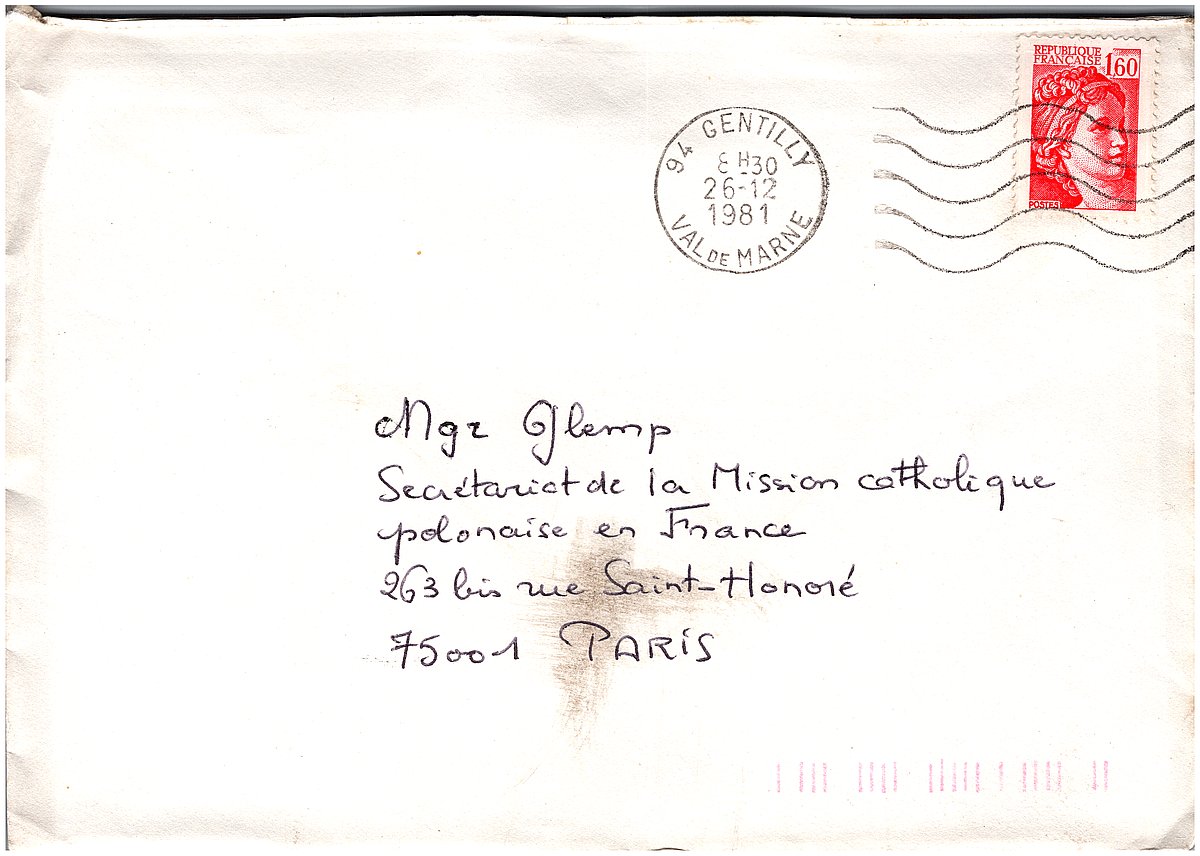 REPUBLIQUE
FRANÇAISE 1,60
POSTES
94 GENTILLY
8H30
26-12
1981
VAL DE MARNE
Mgr Glemp
Secrétariat de la Mission catholique
polonaise en France
263 bis rue Saint-Honoré
75001 PARIS